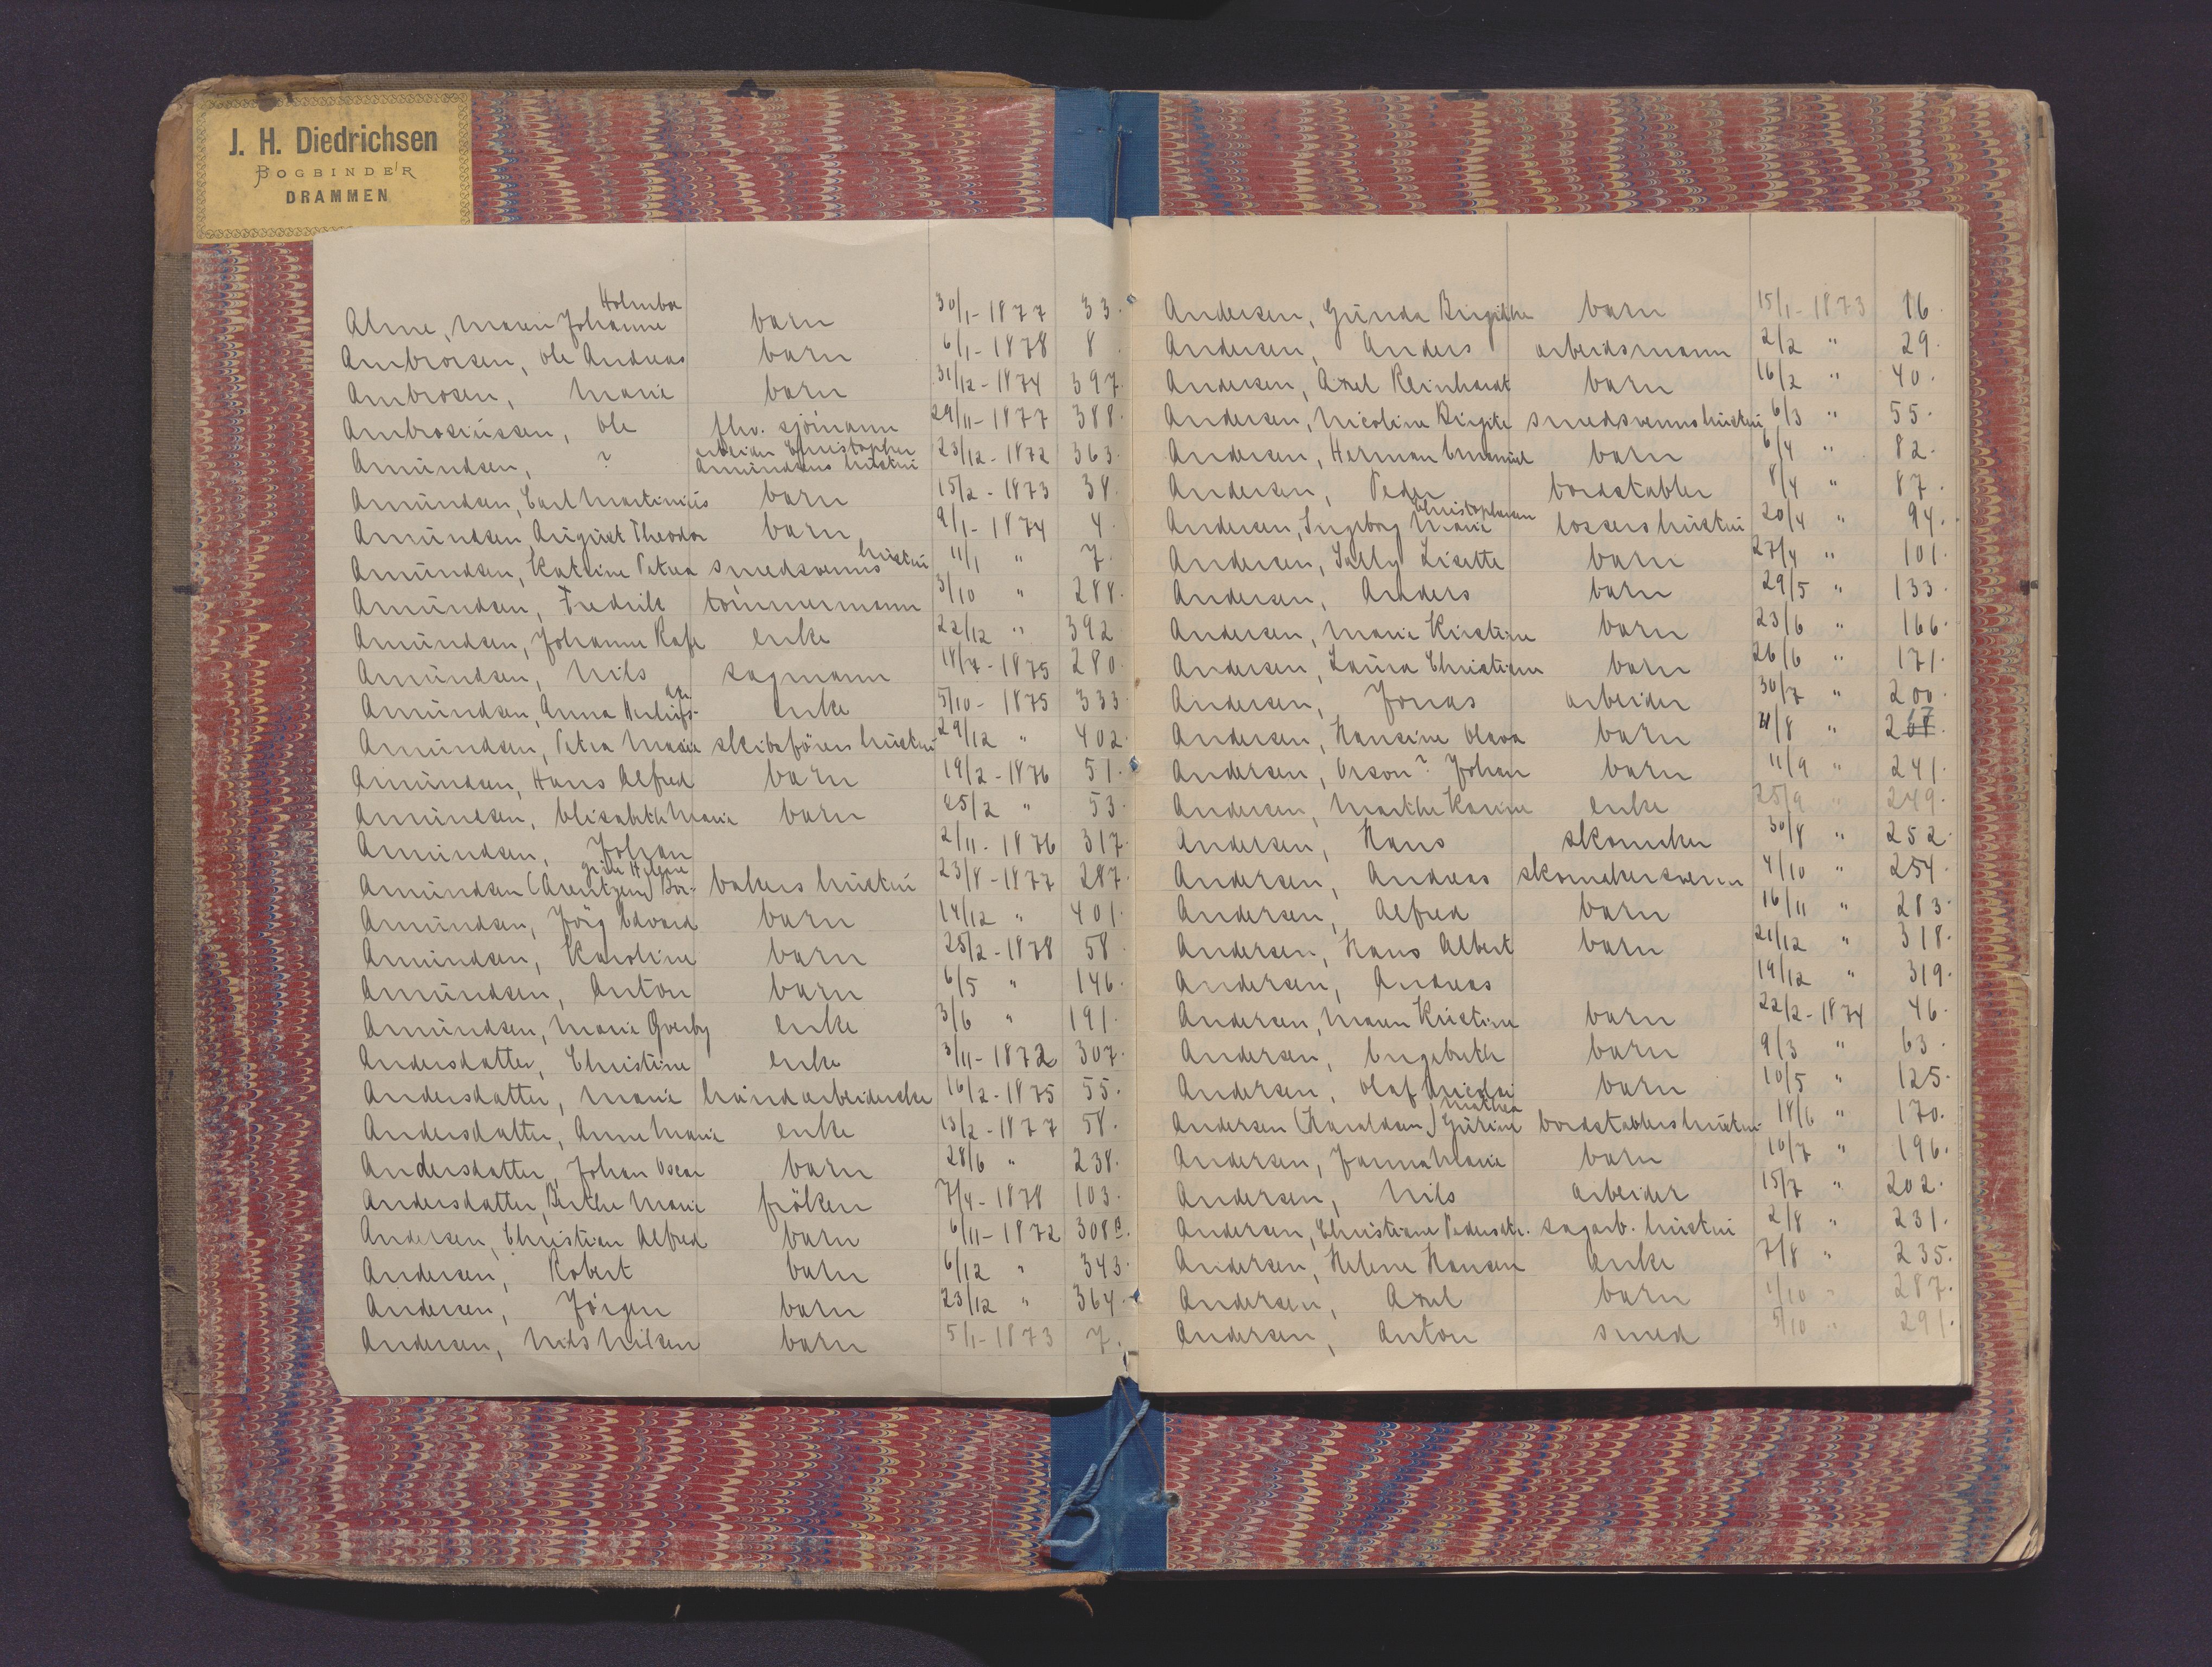 J. H. Diedrichsen
BOGBINDER
DRAMMEN
Holmboe
Alme, Maren Johanne barn 30/1-1877 33.
Ambrosen, Ole Andreas barn 6/1-1878 8.
Ambrosen, Marie barn 31/12-1874 397.
Ambrosiussen, Ole fhv. sjömann 29/11-1877 388.
Amundsen, ? arbeider Christopher Amundsens hustru 23/12-1872 363.
Amundsen, Carl Martinius barn 15/2-1873 38.
Amundsen, August Theodor barn 9/1-1874 4.
Amundsen, Katrine Petrea smedsvenns hustru 11/1 " 7.
Amundsen, Fredrik tömmermann 3/10 " 288.
Amundsen, Johanne enke 22/12 " 392
Amundsen, Nils sagmann 18/7-1875 280.
Amundsen, Anna enke 5/10-1875 333.
Amundsen, Petra Marie skibsförers hustru 29/12 " 402.
Amundsen, Hans Alfred barn 19/2-1876 51.
Amundsen, Elisabeth Marie barn 25/2 " 53.
Amundsen, Johan 2/11-1876 317.
Amundsen (Arentzen) Bor-gitte Helene bakers hustru 23/8-1877 287.
Amundsen, Jörg Edvard barn 14/12 " 401.
Amundsen, Karoline barn 25/2-1878 58.
Amundsen, Anton barn 6/5 " 146.
Amundsen, Marie Qverby enke 3/6 " 191.
Andersdatter, Christine enke 3/11-1872 307.
Andersdatter, Marie haandarbeiderske 16/2-1875 55.
Andersdatter, Anne Marie enke 13/2-1877 58.
Andersdatter, Johan Oscar barn 28/6 " 238.
Andersdatter, Berthe Marie fröken 7/4-1878 103.
Andersen, Christian Alfred barn 6/11-1872 308 B.
Andersen, Robert barn 6/12 " 343.
Andersen, Jörgen barn 23/12 " 364.
Andersen, Nils Nilsen barn 5/1-1873 7.
Andersen, Gunda Birgithe barn 15/1-1873 16.
Andersen, Anders arbeidsmann 2/2 " 29.
Andersen, Axel Reinhardt barn 16/2 " 40.
Andersen, Nicoline Birgite smedsvenns hustru 6/3 " 55.
Andersen, Herman Emanuel barn 6/4 " 82.
Andersen, Peder bordstabler 8/4 " 87.
Andersen, Ingeborg Marie Christophersen lossers hustru 20/4 " 94.
Andersen, Sally Lisette barn 27/4 " 101.
Andersen, Anders barn 29/5 " 133.
Andersen, Marie Kirstine barn 23/6 " 166.
Andersen, Laura Christiane barn 26/6 " 171.
Andersen, Jonas arbeider 30/7 " 200.
Andersen, Hansine Olava barn /8 " 267.
Andersen, Orson? Johan barn 11/9 " 241.
Andersen, Marthe Karine enke 25/9 " 249.
Andersen, Hans skomaker 30/8 " 252.
Andersen, Andreas skomakersvenn 4/10 " 254.
Andersen, Alfred barn 16/11 " 283.
Andersen, Hans Albert barn 21/12 " 318.
Andersen, Andreas 19/12 " 319.
Andersen, Maren Kristine barn 22/2-1874 46.
Andersen, Engebreth barn 9/3 " 63.
Andersen, Olaf Nicolai barn 10/5 " 125.
Andersen (Haraldsen) Gurine Mathea bordstablers hustru 18/6 " 170.
Andersen, Janna Marie barn 10/7 " 196.
Andersen, Nils arbeider 15/7 " 202.
Andersen, Christiane Pedersdtr. sagarb. hustru 2/8 " 231.
Andersen, Helene Hansen enke 7/8 " 235.
Andersen, Axel barn 1/10 " 287.
Andersen, Anton smed 5/10 " 291.